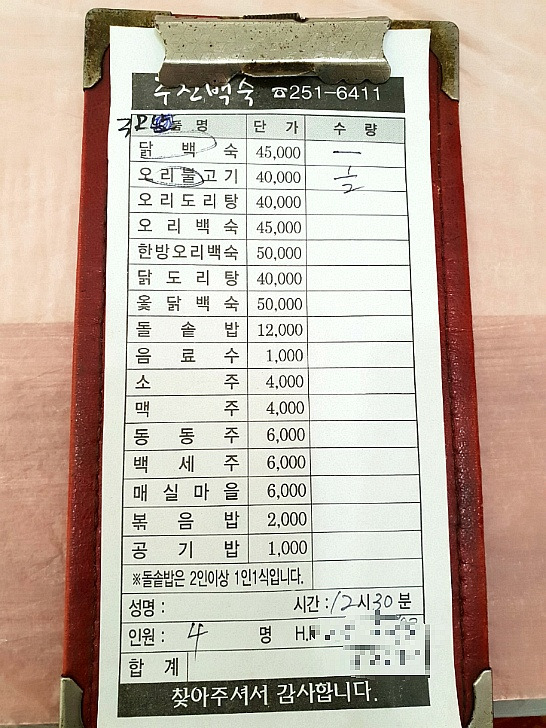 추진백숙 ☎251-6411
품 명 단 가 수 량
닭 백 숙 45,000 一
오리불고기 40,000 1/2
오리도리탕 40,000
오 리 백 숙 45,000
한방오리백숙 50,000
닭 도 리 탕 40,000
옻 닭 백 숙 50,000
돌 솥 밥 12,000
음 료 수 1,000
소 주 4,000
맥 주 4,000
동 동 주 6,000
백 세 주 6,000
매 실 마 을 6,000
볶 음 밥 2,000
공 기 밥 1,000
※돌솥밥은 2인이상 1인1식입니다.
성명 : 시간 : 12시30분
인원 : 4 명 H.
합 계
찾아주셔서 감사합니다.